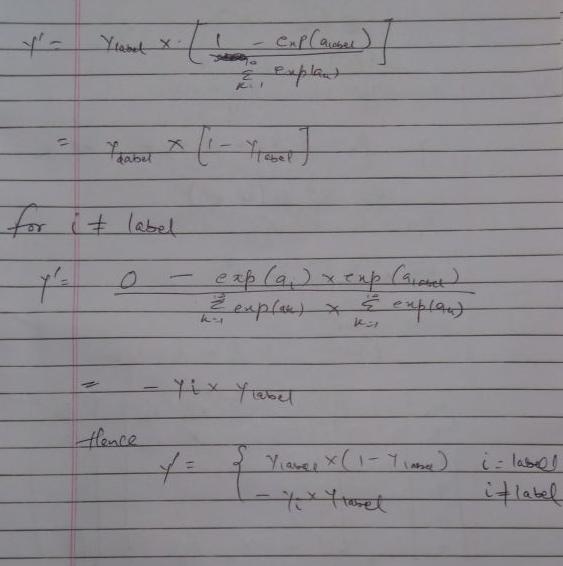 y' = y_label × [ 1 - exp(a_label) / Σ_{k=1}^{10} exp(a_k) ]
= y_label × [1 - y_label]
for i ≠ label
y' = 0 - exp(a_i) × exp(a_label) / Σ_{k=1}^{10} exp(a_k) × Σ_{k=1}^{10} exp(a_k)
= - y_i × y_label
Hence
y' = { y_label × (1 - y_label) i = label
- y_i × y_label i ≠ label